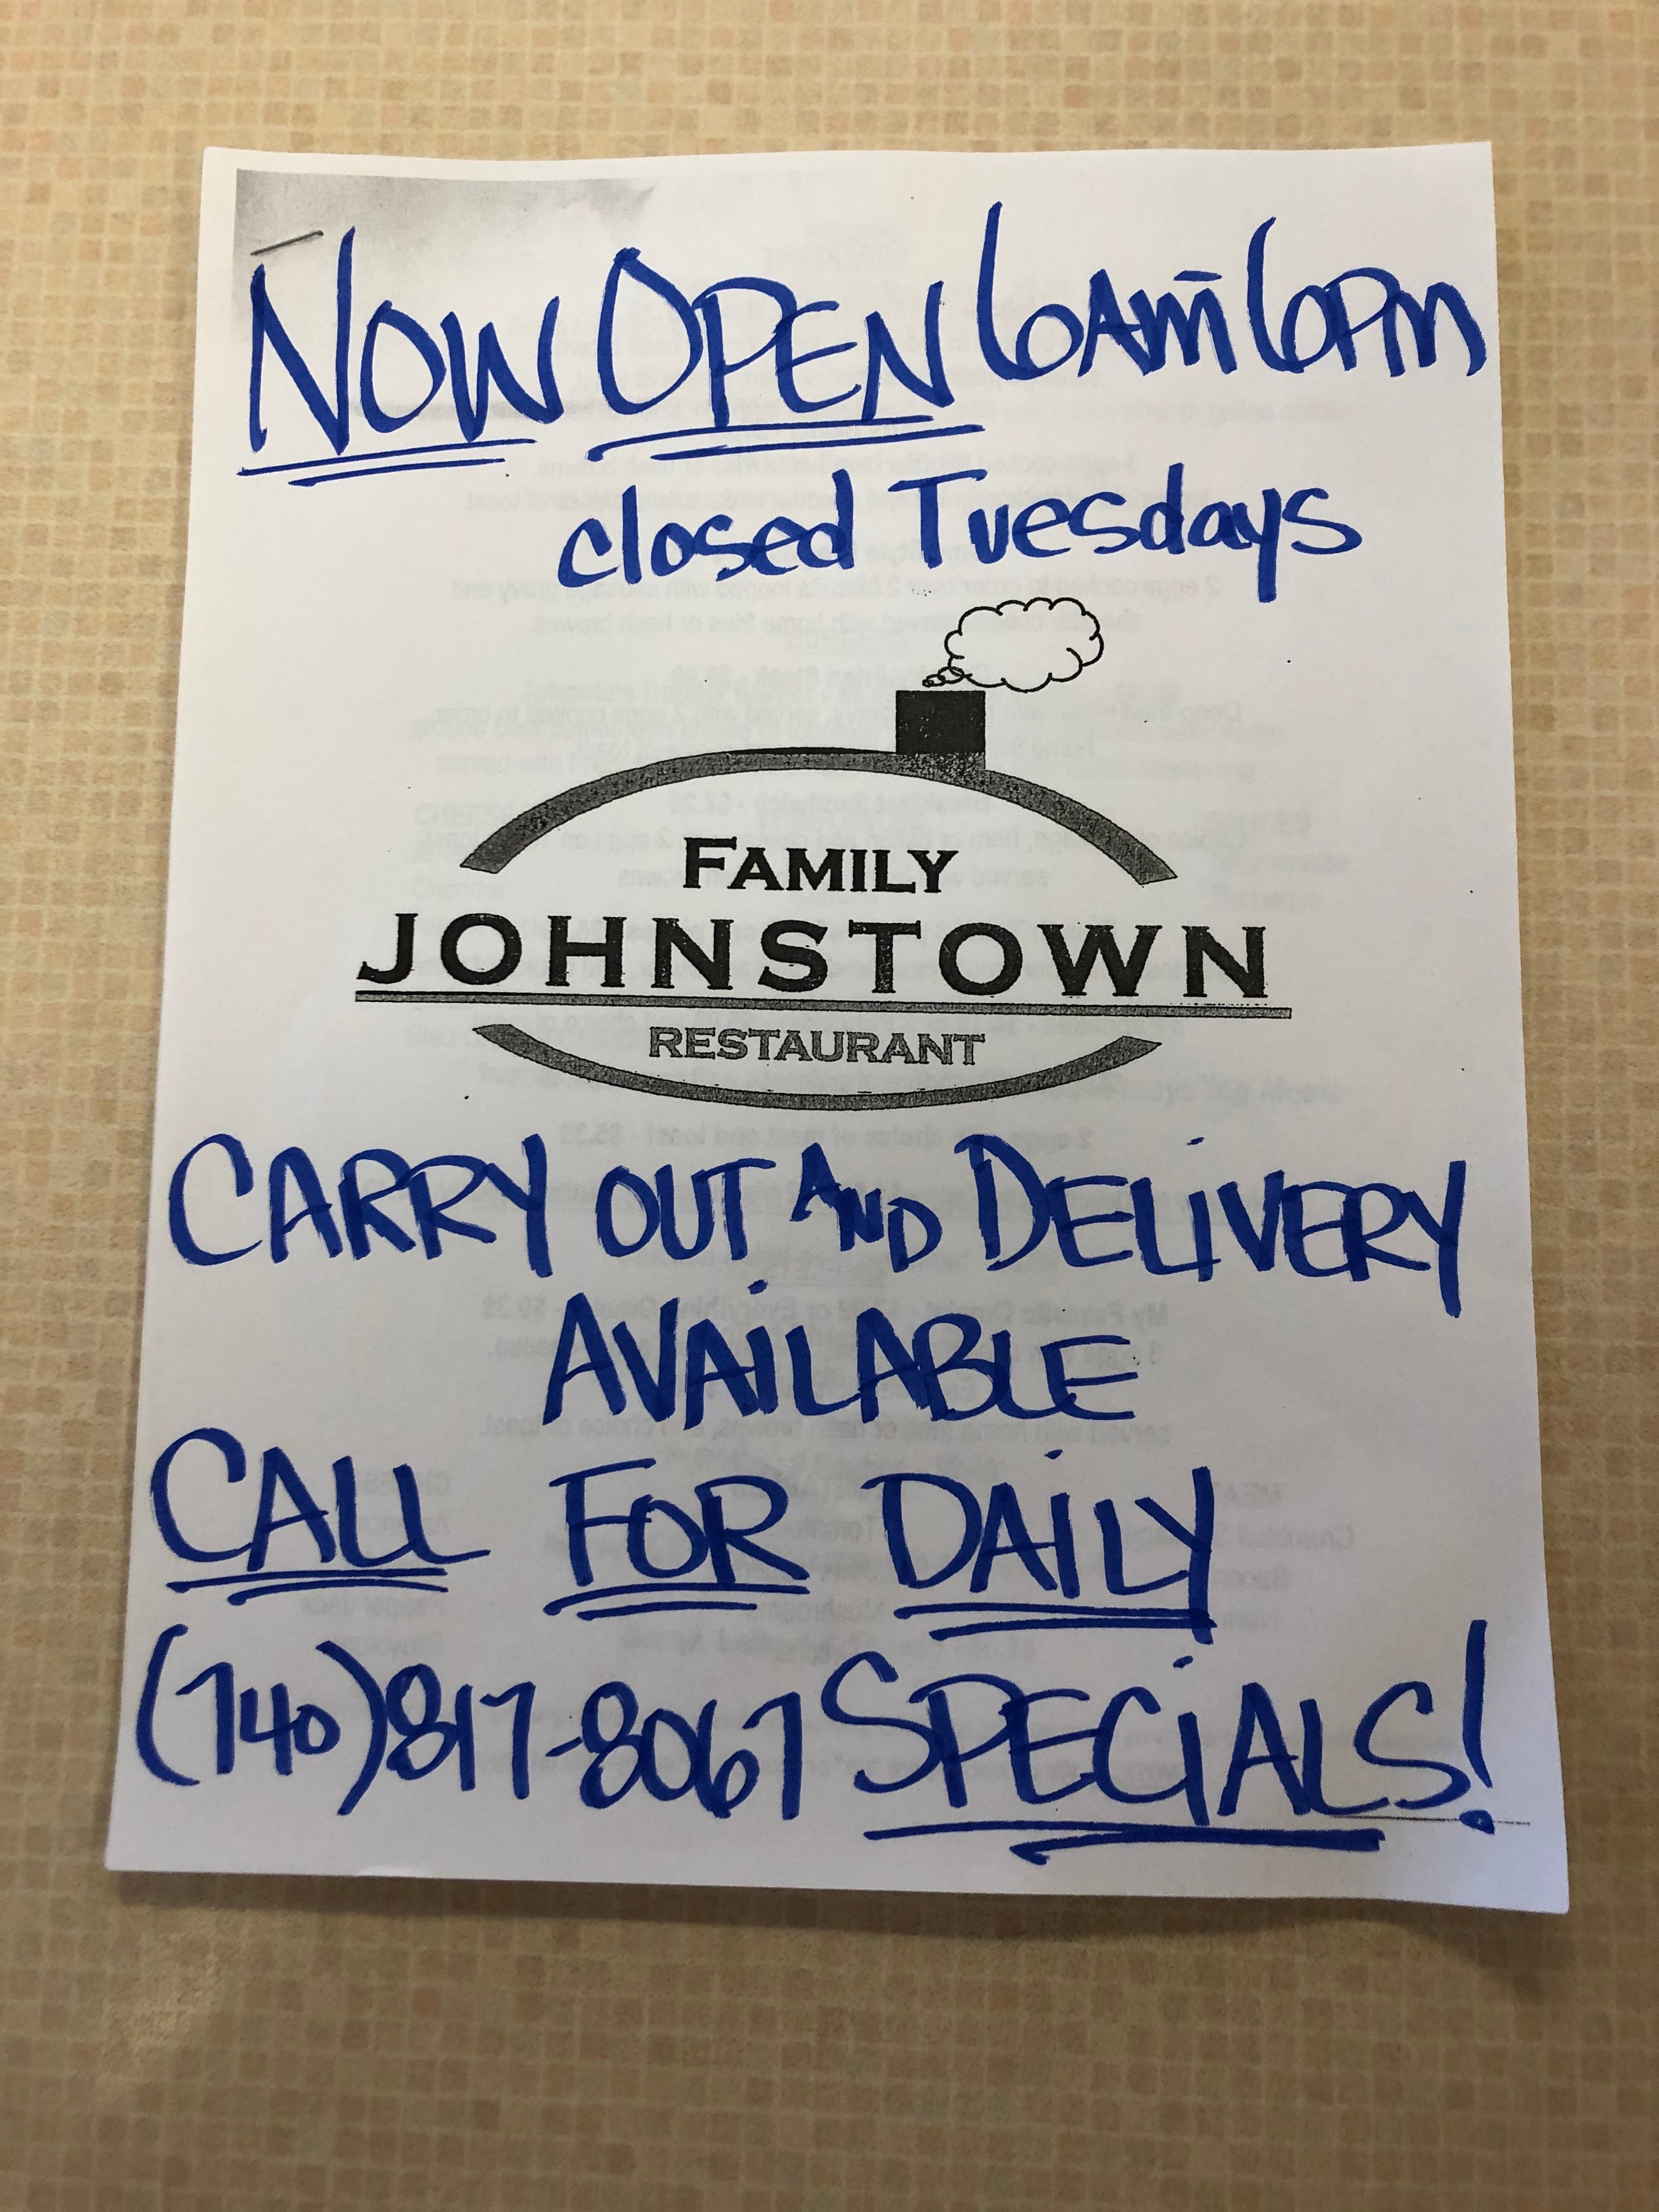 NOW OPEN 6AM-6PM
closed Tuesdays
FAMILY
JOHNSTOWN
RESTAURANT
CARRY OUT AND DELIVERY
AVAILABLE
CALL FOR DAILY
(740)817-8067 SPECIALS!